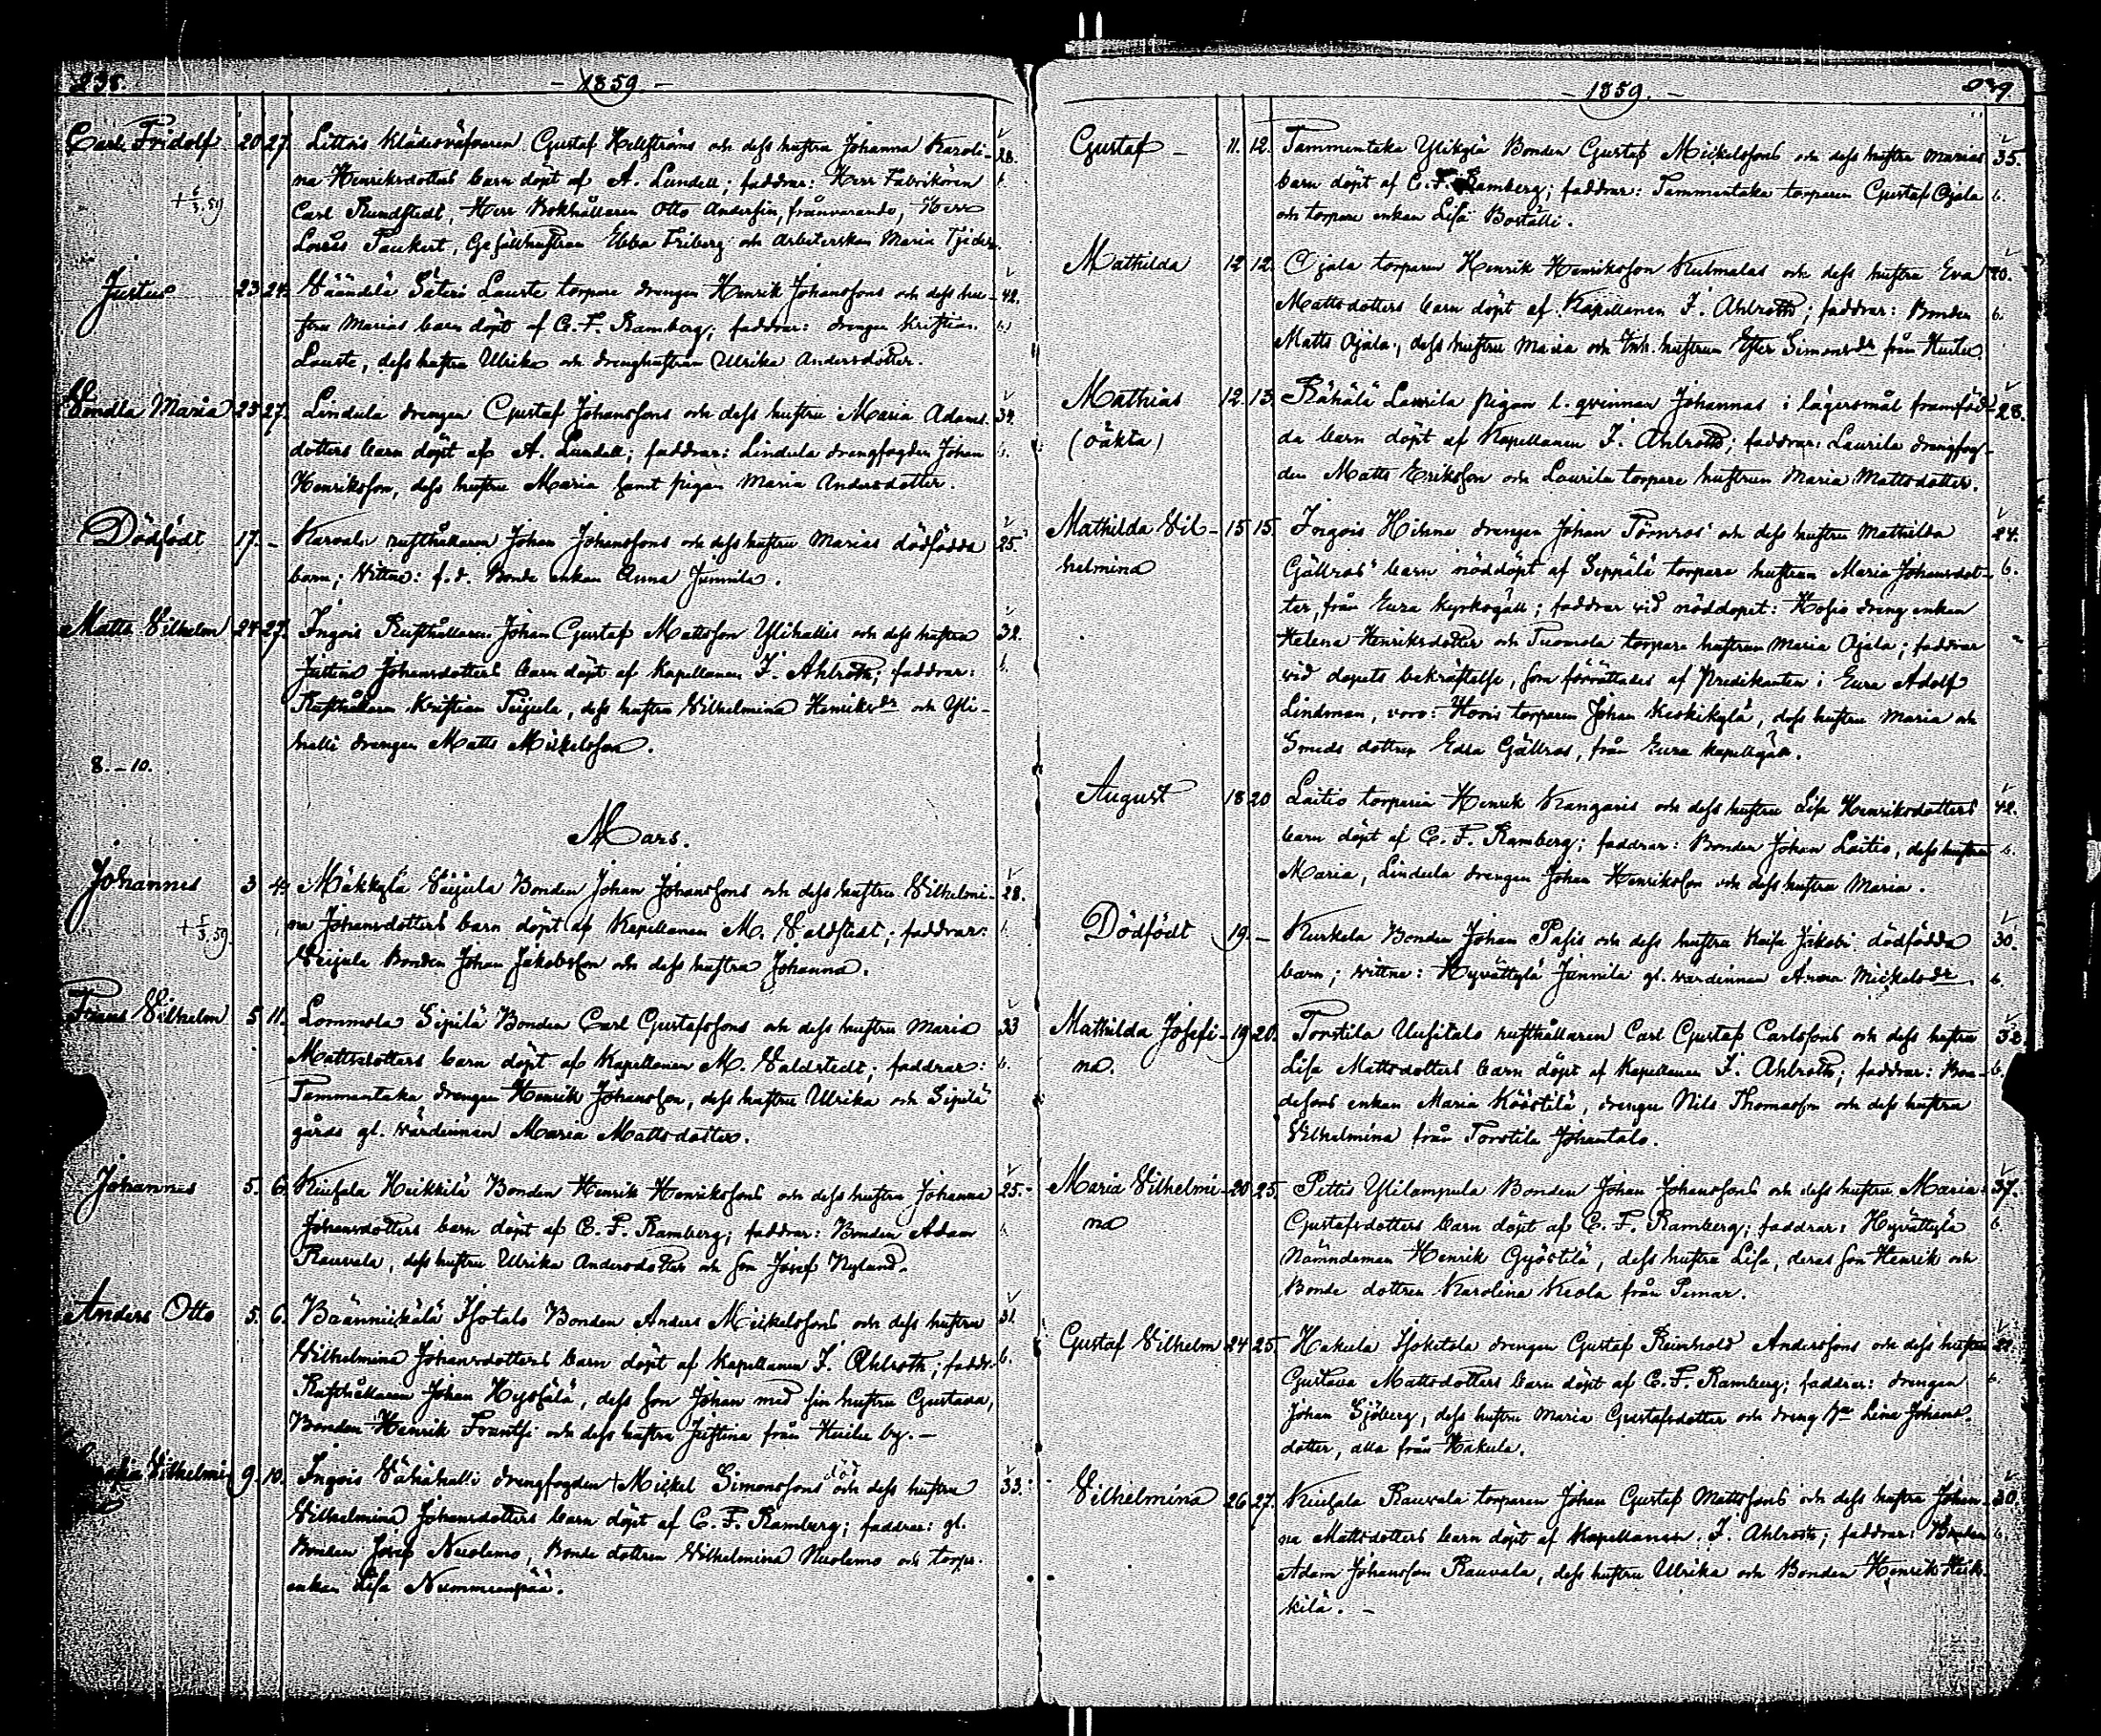 238.
- 1859 -
Carl Fridolf 20 27. Littois Klädesväfvaren Gustaf Hellströms och dess hustru Johanna Karoli- 28.
na Henriksdotters barn döpt af A. Lundell; faddrar: Herr Fabrikören
Carl Rundstedt, Herr Bokhållaren Otto Andersin, frånvarande, Herr
Paukert, Gesällhustrun Ebba Friberg och arbeterskan Maria
Justus 23 24. Väändelä Säteri Lauste torpare drengen Henrik Johanssons och dess hu- 42.
stru Marias barn döpt af C. F. Ramberg; faddrar: drengen Kristian
Lauste, dess hustru Ulrika och drenghustrun Ulrika Andersdotter.
Vendla Maria 25 27. Lindula drengen Gustaf Johanssons och dess hustru Maria Adams- 34.
dotters barn döpt af A. Lundell; faddrar: Lindula drengfogden Johan
Henriksson, dess hustru Maria samt pigan Maria Andersdotter.
Dödfödt 17. - Karvala rusthållaren Johan Johanssons och dess hustru Marias dödfödda 25.
barn; vittne: f.d. Bonde enkan Anna Junnila.
Matts Vilhelm 24 27. Ingois Rusthållaren Johan Gustaf Mattsson Ylihallis och dess hustru 32.
Justina Johansdotters barn döpt af Kapellanen F. Ahlroth; faddrar:
Rusthållaren Kristian Peijula, dess hustru Vilhelmina Henriksdr och Yli-
halli drengen Matts Mickelsson.
8. - 10.
Mars.
Johannes 3 4. Mäkkylä Veijula Bonden Johan Johanssons och dess hustru Vilhelmi- 28.
na Johansdotters barn döpt af Kapellanen M. Valdstedt; faddrar:
Veijula Bonden Johan Jakobsson och dess hustru Johanna.
Frans Vilhelm 5 11. Lommola Sipilä Bonden Carl Gustafssons och dess hustru Maria 33
Mattsdotters barn döpt af Kapellanen M. Valdstedt; faddrar:
Tammentaka drengen Henrik Johansson, dess hustru Ulrika och Sipilä
gårds gl. värdinnan Maria Mattsdotter.
Johannes 5. 6. Kiusala Heikkilä Bonden Henrik Henrikssons och dess hustru Johanna 25.
Johansdotters barn döpt af C. F. Ramberg; faddrar: Bonden Adam
Rauvala, dess hustru Ulrika Andersdotter och son Josef Nylund.
Anders Otto 5. 6. Isotalo Bonden Anders Mickelssons och dess hustru 31.
Vilhelmina Johansdotters barn döpt af Kapellanen F. Ahlroth; faddr. 6.
Rusthållaren Johan Hyssälä, dess son Johan med sin hustru Gustava,
Bonden Henrik Frantsi och dess hustru Justina från Huilu by. -
Vilhelmi- 9. 10. Ingois Vähähalli drengfogden + Mickel Simonssons och dess hustru 33.
död
Vilhelmina Johansdotters barn döpt af C. F. Ramberg; faddrar: gl.
Bonden Josef Nuolemo, Bonde dottren Vilhelmina Nuolemo och torp.
enkan Lisa Nummenpää.
- 1859. -
239.
Gustaf - 11. 12. Tammentaka Ylikylä Bonden Gustaf Mickelssons och dess hustru Marias 35.
barn döpt af C. F. Ramberg; faddrar: Tammentaka torparen Gustaf Ojala 6.
och torpare enkan Lisa Boställi.
Mathilda 12 12. Ojala torparen Henrik Henriksson Kulmalas och dess hustru Eva 20.
Mattsdotters barn döpt af Kapellanen F. Ahlroth; faddrar: Bonden 6.
Matts Ojala, dess hustru Maria och Inh. hustrun Ester Simonsdr från Huilu.
Mathias 12. 13. Rähälä Laurila pigan l. qvinnan Johannas i lägersmål framföd- 28.
(oäkta) da barn döpt af Kapellanen F. Ahlroth; faddrar: Laurila drengfog-
den Matts Eriksson och Laurila torpare hustrun Maria Mattsdotter.
Mathilda Vil- 15 15. Ingois Hihna drengen Johan Törnros och dess hustru Mathilda 24.
helmina Gällros' barn nöddöpt af Seppälä torpare hustrun Maria Johansdot- 6.
ter, från Eura kyrkogäll; faddrar vid nöddopet: Hosio dreng enkan
Helena Henriksdotter och Tuomola torpare hustrun Maria Ojala; faddrar
vid dopets bekräftelse, som förrättades af Predikanten i Eura Adolf
Lindman, voro: Horis torparen Johan Keskikylä, dess hustru Maria och
Smeds dottren Edla Gällros, från Eura kapellgäll.
August 18 20 Laitio torparen Henrik Kangaris och dess hustru Lisa Henriksdotters 42.
barn döpt af C. F. Ramberg; faddrar: Bonden Johan Laitio, dess hustru 6.
Maria, Lindula drengen Johan Henriksson och dess hustru Maria.
Dödfödt 19. - Kurkela Bonden Johan Pasis och dess hustru Kaisa Jakobi dödfödda 30.
barn; vittne: Hyvättylä Junnila gl. värdinnan Anna Mickelsdr. 6.
Mathilda Josefi- 19 20. Torstila Uusitalo rusthållaren Carl Gustaf Carlssons och dess hustru 32.
na. Lisa Mattsdotters barn döpt af Kapellanen F. Ahlroth; faddrar: Bon- 6.
desons enkan Maria Kööstilä, drengen Nils Thomasson och dess hustru
Vilhelmina från Torstila Juhantalo.
Maria Vilhelmi- 20 25. Pettis Ylilampula Bonden Johan Johanssons och dess hustru Maria 37.
na Gustafsdotters barn döpt af C. F. Ramberg; faddrar: Hyvättylä 6.
Nämndeman Henrik Gyöstilä, dess hustru Lisa, deras son Henrik och
Bonde dottren Karolina Keola från Pemar.
Gustaf Vilhelm 24 25. Hakula Isokitola drengen Gustaf Reinhold Anderssons och dess hustru 22.
Gustava Mattsdotters barn döpt af C. F. Ramberg; faddrar: drengen 6.
Johan Sjöberg, dess hustru Maria Gustafsdotter och dreng Lina Johans-
dotter, alla från Hakula.
Vilhelmina 26 27. Kiusala Rauvala torparen Johan Gustaf Mattssons och dess hustru Johan- 30.
na Mattsdotters barn döpt af Kapellanen F. Ahlroth; faddrar: Bonden 6.
Adam Johansson Rauvala, dess hustru Ulrika och Bonden Henrik Heik-
kilä. -